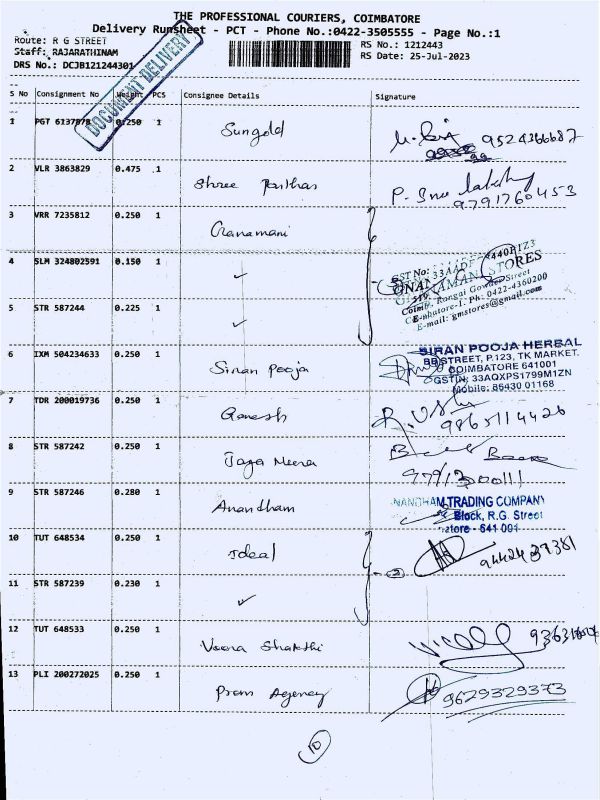 THE PROFESSIONAL COURIERS, COIMBATORE
Delivery Runsheet - PCT - Phone No.:0422-3505555 - Page No.:1
Route: R G STREET
Staff: RAJARATHINAM
DRS No.: DCJB121244301
RS No.: 1212443
RS Date: 25-Jul-2023
DOCUMENT DELIVERY
S No Consignment No Weight PCS Consignee Details Signature
1 PGT 6137878 0.250 1 Sungold 9524366687
2 VLR 3863829 0.475 1 Shree 9791760453
3 VRR 7235812 0.250 1 Gnanamani
4 SLM 324802591 0.150 1 ✓
GST No: 33AADF
GNANAMANI STORES
519, Rangai Gowder Street
Coimbatore-1. Ph: 0422-4360200
E-mail: gmstores@gmail.com
5 STR 587244 0.225 1 ✓
6 IXM 504234633 0.250 1 Siran Pooja
SIRAN POOJA HERBAL
BB STREET, P.123, TK MARKET.
COIMBATORE 641001
GSTIN: 33AQXPS1799M1ZN
Mobile: 86430 01168
7 TDR 200019736 0.250 1 Ganesh 9865114426
8 STR 587242 0.250 1 Jaga Meena
9 STR 587246 0.280 1 Anandham
NANDHAM TRADING COMPANY
Block, R.G. Street
atore - 641 001
10 TUT 648534 0.250 1 Ideal 9442439381
11 STR 587239 0.230 1 ✓
12 TUT 648533 0.250 1 Veera Shakthi
13 PLI 200272025 0.250 1 Prem Agency 9629329373
10